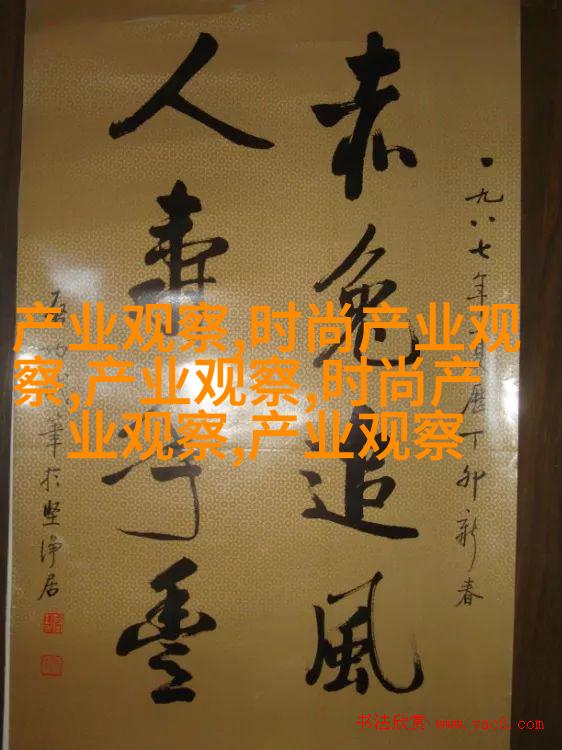 一九八七年 丁卯新春
赤兔追風
人壽年豐
启功 於坚浄居
产业观察,时尚产业观
察,产业观察,时尚产
业观察,产业观察
书法欣赏 www.yac8.com